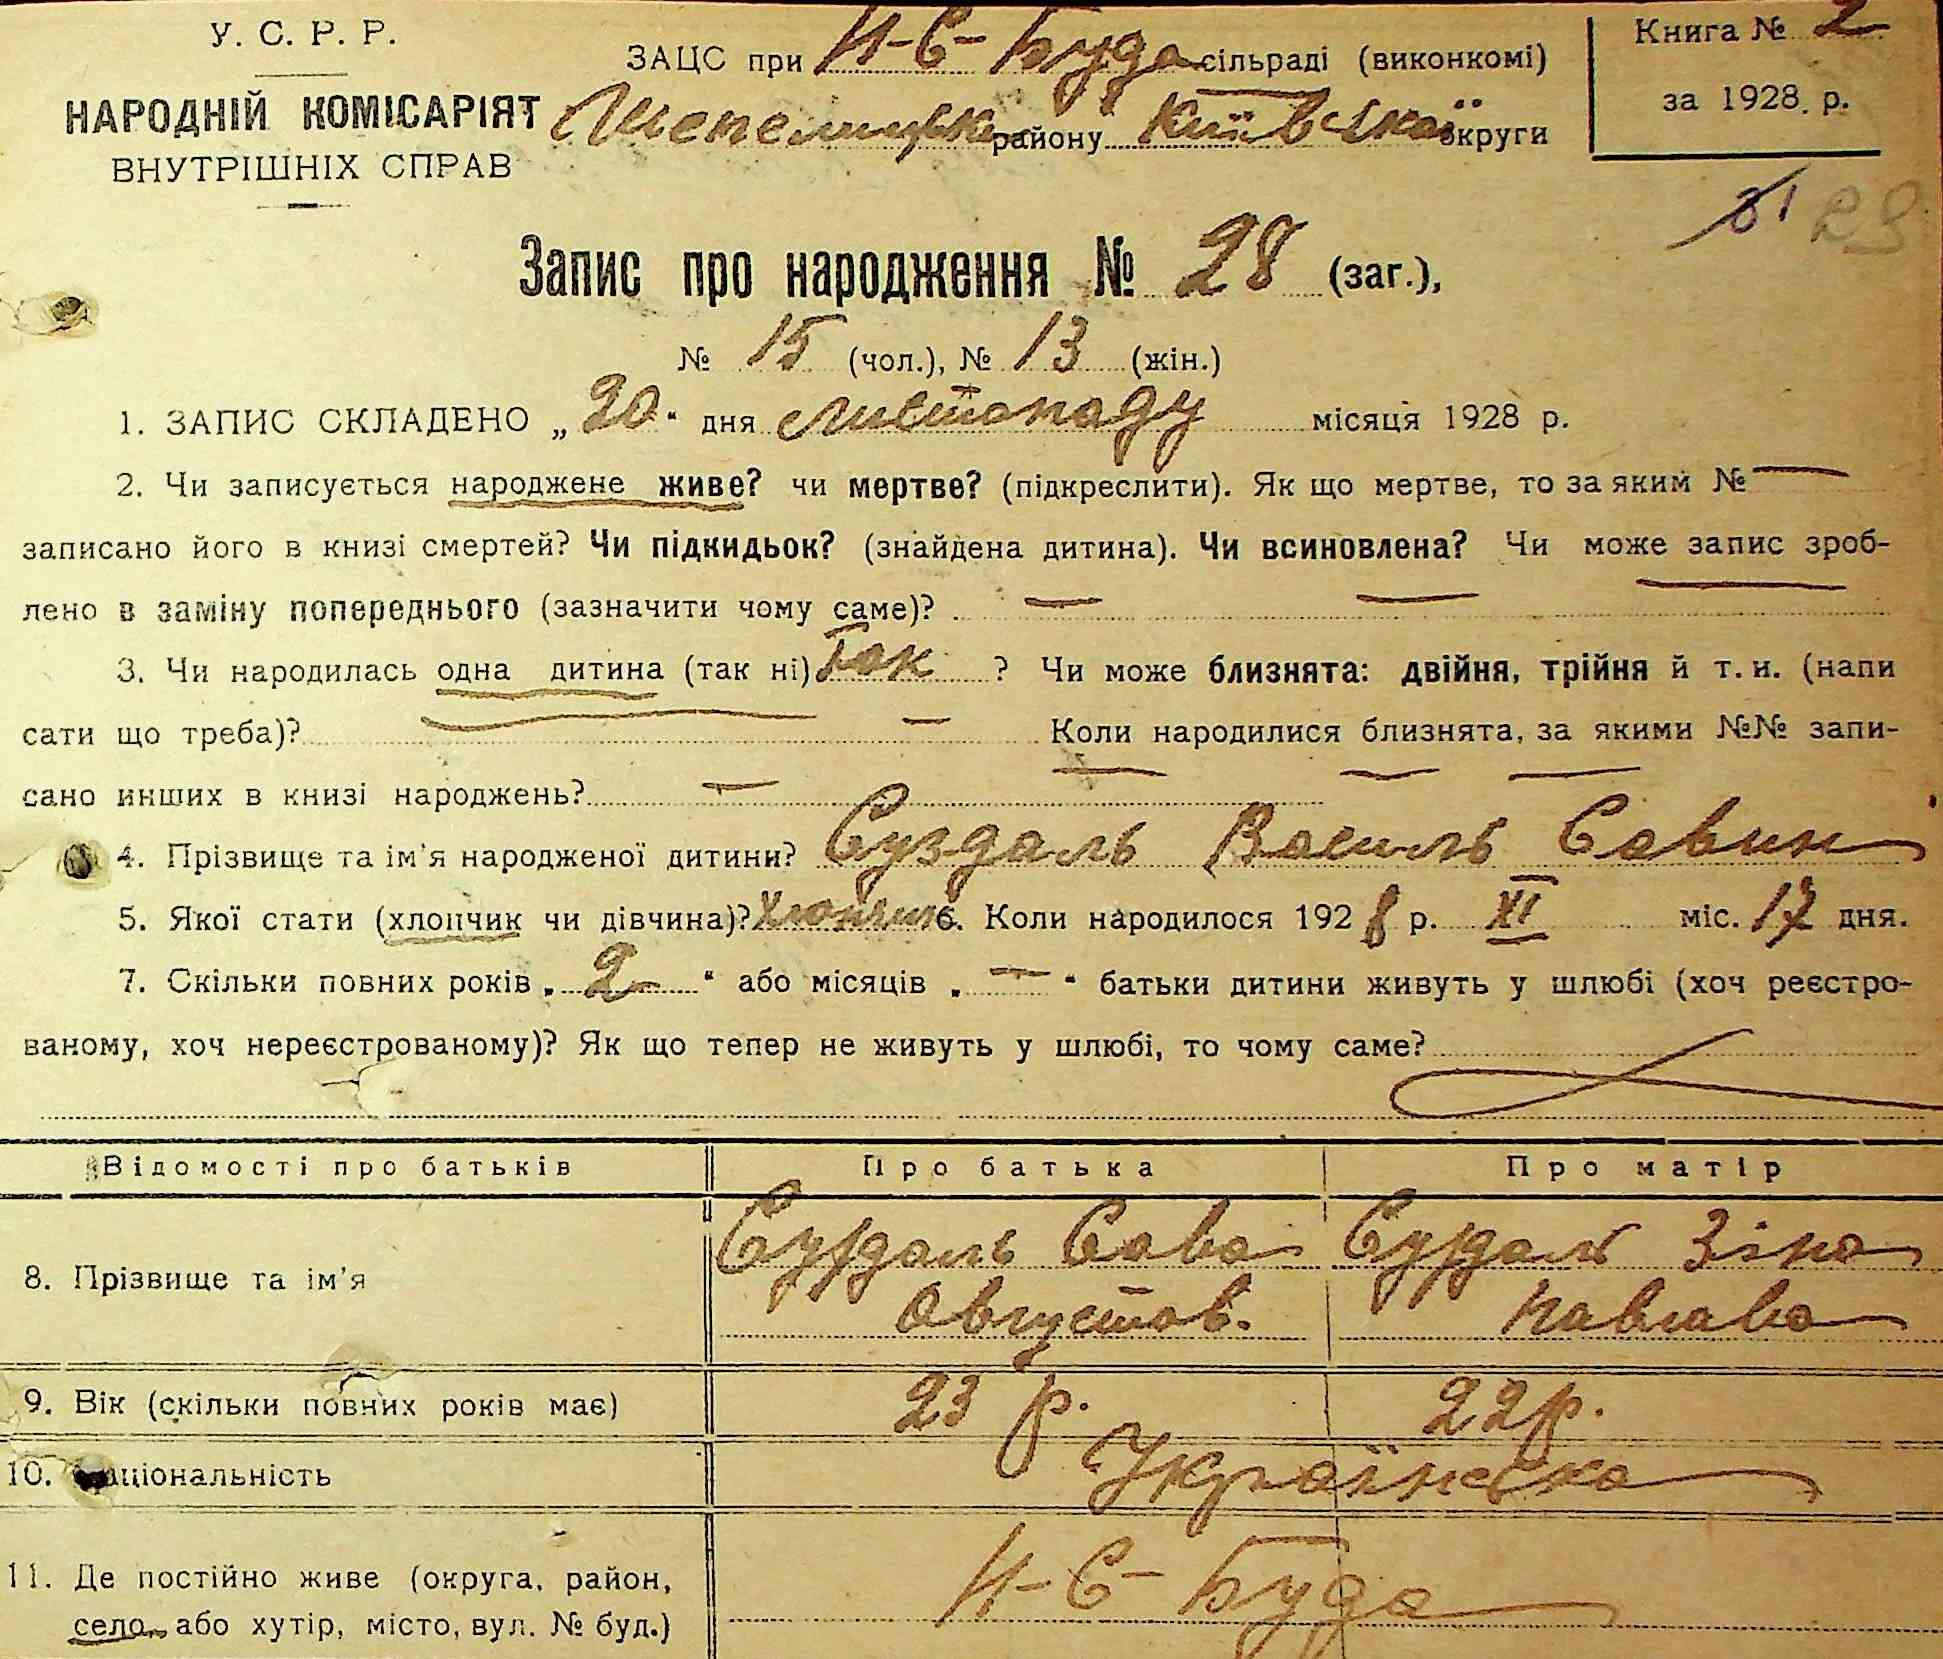 У. С. Р. Р.
НАРОДНІЙ КОМІСАРІЯТ
ВНУТРІШНІХ СПРАВ
ЗАЦС при Н-С-Буда сільраді (виконкомі)
Шепелицьк району Київської округи
Книга № 2
за 1928 р.
31 29
Запис про народження № 28 (заг.),
№ 15 (чол.), № 13 (жін.)
1. ЗАПИС СКЛАДЕНО „20“ дня листопаду місяця 1928 р.
2. Чи записується народжене живе? чи мертве? (підкреслити). Як що мертве, то за яким № —
записано його в книзі смертей? Чи підкидьок? (знайдена дитина). Чи всиновлена? Чи може запис зроб-
лено в заміну попереднього (зазначити чому саме)? — —
3. Чи народилась одна дитина (так ні) Так ? Чи може близнята: двійня, трійня й т. и. (напи
сати що треба)? — Коли народилися близнята, за якими №№ запи-
сано инших в книзі народжень? —
4. Прізвище та ім'я народженої дитини? Суздаль Василь Савин
5. Якої стати (хлопчик чи дівчина)? Хлопчик 6. Коли народилося 1928 р. XI міс. 17 дня.
7. Скільки повних років „2“ або місяців „—“ батьки дитини живуть у шлюбі (хоч реєстро-
ваному, хоч нереєстрованому)? Як що тепер не живуть у шлюбі, то чому саме?
Відомості про батьків Про батька Про матір
8. Прізвище та ім'я Суздаль Сава Суздаль Зіна
Августов. Павлава
9. Вік (скільки повних років має) 23 р. 22 р.
10. Національність Українська
11. Де постійно живе (округа, район, Н-С-Буда
село, або хутір, місто, вул. № буд.)